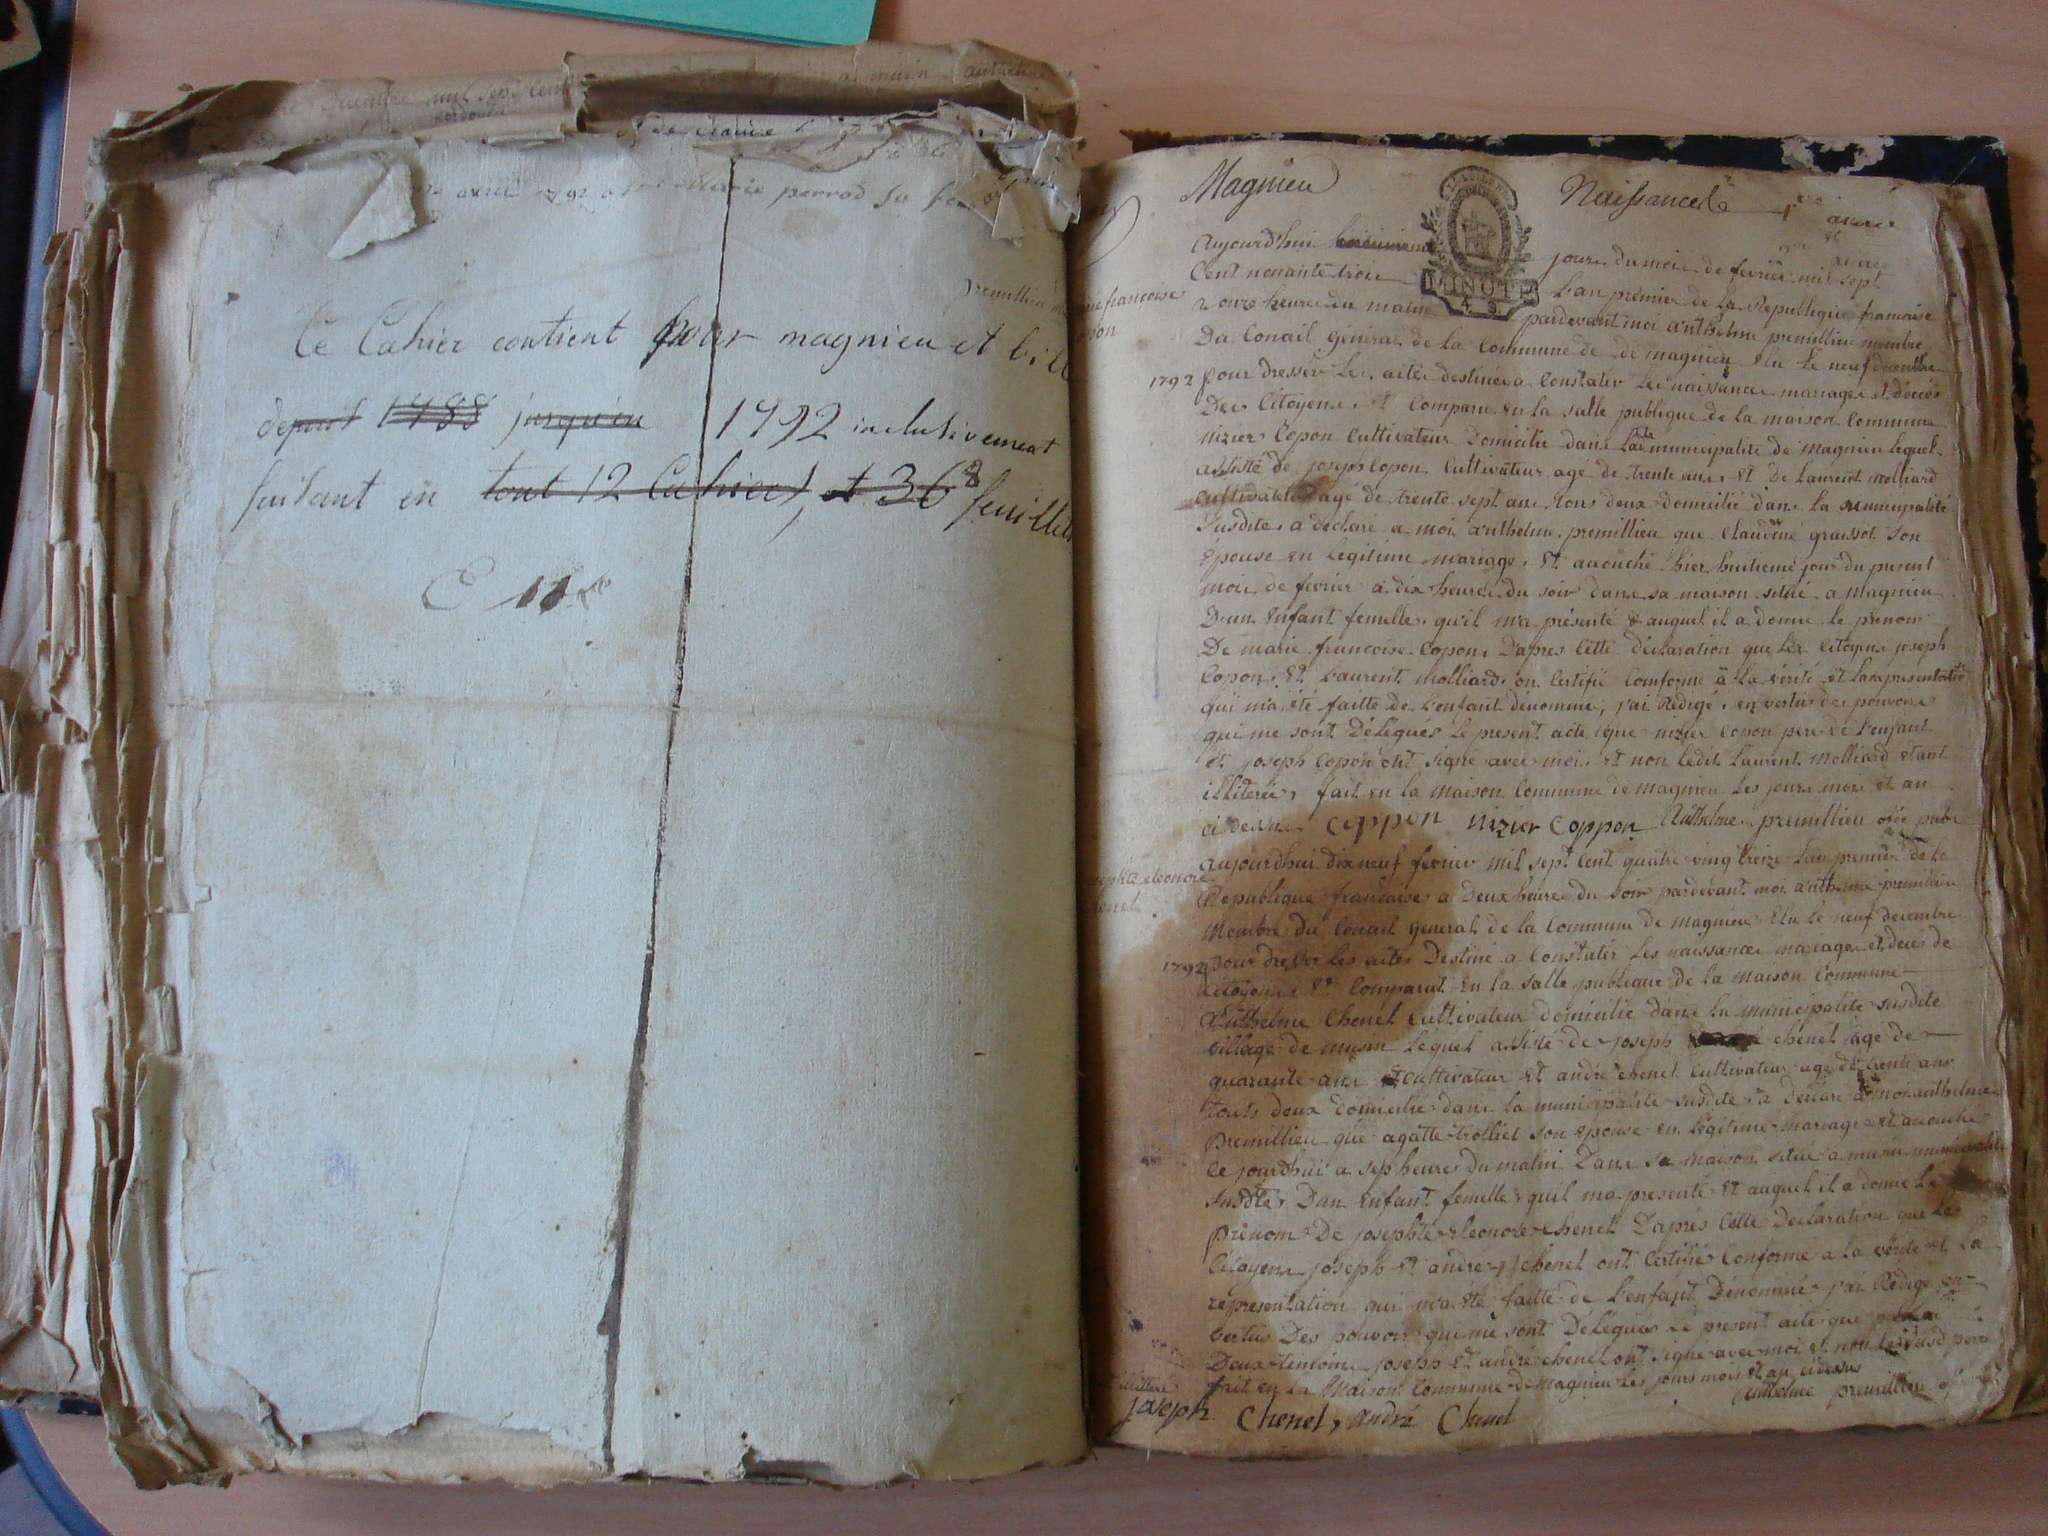 Ce Cahier contient pour magnieu et bill
depuis 1788 jusqu'en 1792 inclusivement
faisant en tout 12 Cahiers, et 368 feuillets
E 11
Magnieu Naissance 1er
aujourd'hui jours du mois de fevrier mil sept
Cent nonante trois L'an premier de la Republique francaise
a onze heures du matin pardevant moi anthelme premillieu membre
Du Conseil général de la Commune de de magnieu elu le neuf decembre
1792 pour dresser les actes destinés a Constater les naissances mariages et décès
Des Citoyens, Et Comparu en la salle publique de la maison Commune
nizier Copon Cultivateur Domicilié dans la municipalité de Magnieu lequel
assisté de joseph Copon Cultivateur agé de trente ans Et de Laurent molliard
Cultivateur agé de trente sept ans tous deux domicilié dans la municipalité
susdite, a déclaré a moi anthelme premillieu que Claudine graissot son
épouse en légitime mariage, Et acouché hier huitieme jour du present
mois de fevrier a dix heures du soir dans sa maison situé a Magnieu
D'un Enfant femelle qu'il m'a présenté & auquel il a donné le prenom
De marie francoise Copon, D'apres Cette déclaration que les Citoyens joseph
Copon Et Laurent molliard on Certifié Comforme a la vérité et la representation
qui m'a été faitte de L'enfant dénommé, j'ai Rédigé, en vertus des pouvoirs
qui me sont Délégués Le present acte que nizier Copon pere de l'enfant
et joseph Copon ont signé avec moi, Et non ledit Laurent Molliard étant
illiterée, fait en la maison Commune de magnieu les jours mois et an
ci dessus Coppon nizier Coppon Anthelme premillieu
aujourdhui dix neuf fevrier mil sept cent quatre vingt treize L'an premier de la
Republique francaise a Deux heures du soir pardevant moi anthelme premillieu
Membre du Conseil general de la Commune de magnieu Elu le neuf decembre
1792 pour dresser les actes Destiné a Constater Les naissances mariages et deces de
Citoyens Et Comparut En la salle publique de la maison Commune
Anthelme Chenel Cultivateur domicilié dans la municipalité susdite
village de musin Lequel assisté de joseph chenel agé de
quarante ans Cultivateur Et andré chenel Cultivateur agé de trente ans
touts deux domicilié dans la municipalité susdite, a Declaré a moi anthelme
premillieu que agatte trolliet son Epouse en légitime mariage et acouché
Ce jourdhui a sep heures du matin Dans sa maison situé a musin municipalité
susdite, D'un Enfant femelle quil ma presenté Et auquel il a donné Le
prenom De josephte eleonore chenel D'après Cette Declaration que Les
Citoyens joseph Et andre chenel ont Certifié Conforme a la vérité et La
representation qui m'a été faitte de L'enfant Dénommé j'ai Rédigé en
vertus Des pouvoirs qui me sont Délégués Le present acte que
Deux temoins joseph Et andré chenel ont signé avec moi et non
fait en la Maison Commune de magnieu les jours mois et an ci dessus
Anthelme premillieu
joseph Chenel, andré Chenel